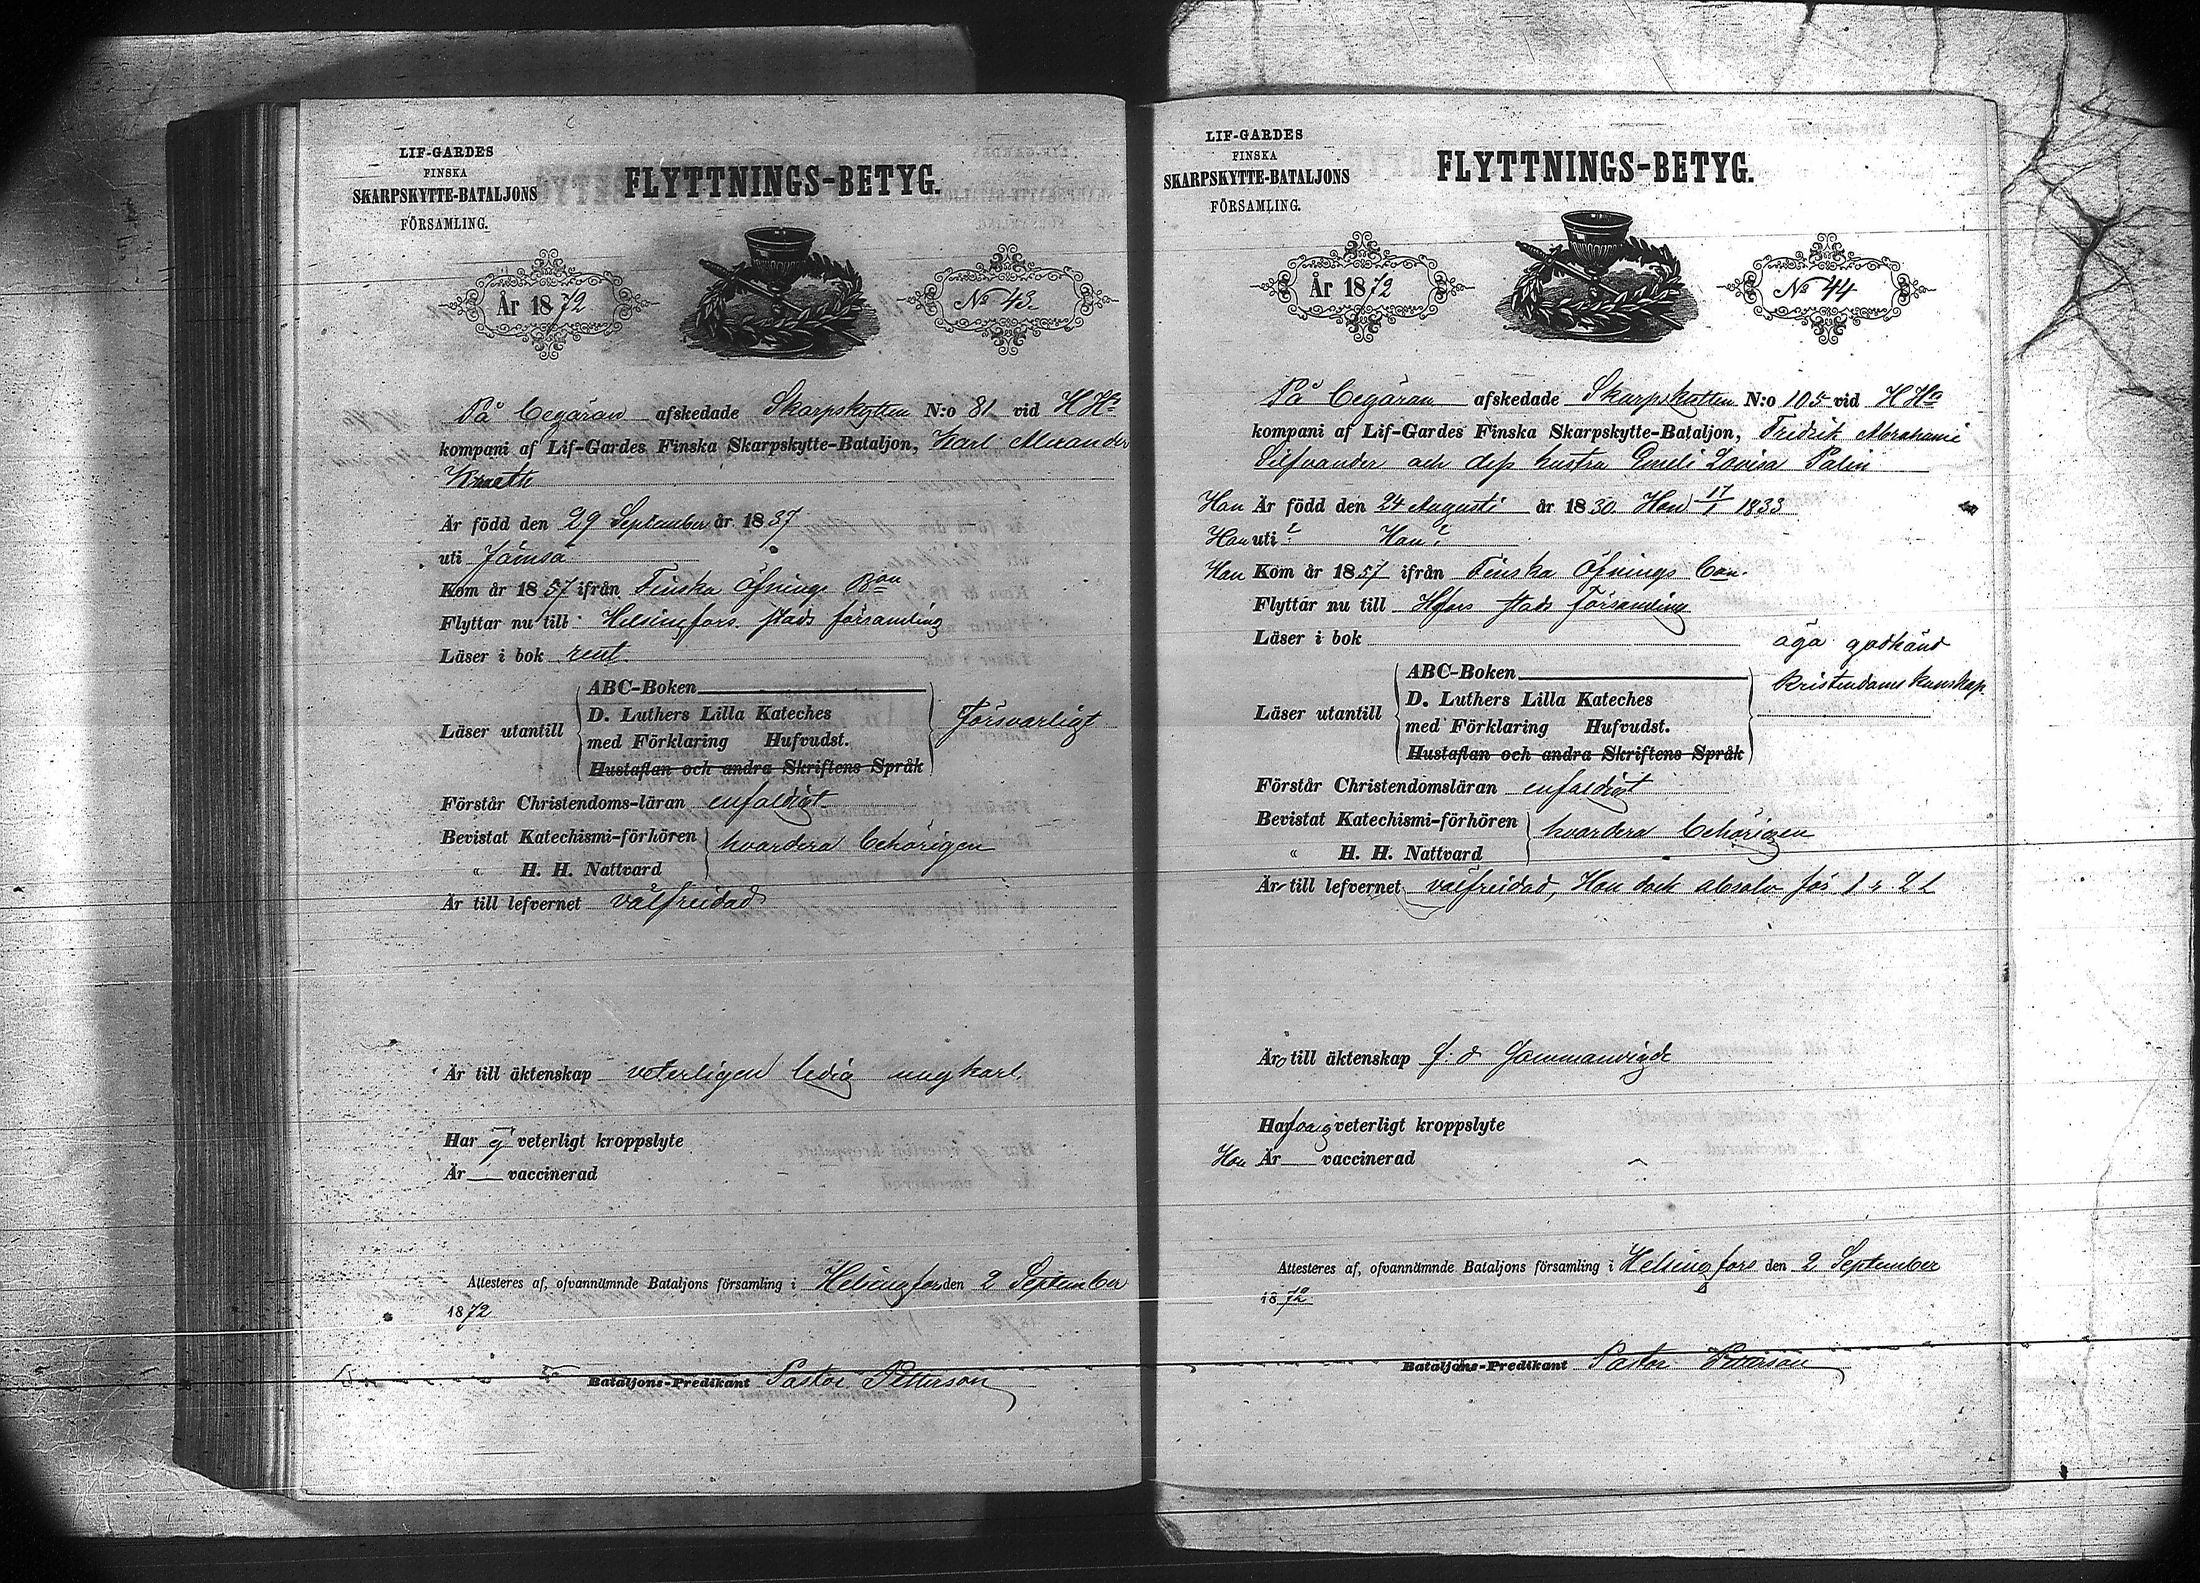 LIF-GARDES
FINSKA
SKARPSKYTTE-BATALJONS
FÖRSAMLING.
FLYTTNINGS-BETYG.
År 1872
No 43
På begäran afskedade Skarpskytten N:o 81 vid HHs
kompani af Lif-Gardes Finska Skarpskytte-Bataljon, Karl Alexander
Är född den 29 September år 1837
uti Jämsä
Kom år 1857 ifrån Finska Öfnings Bon
Flyttar nu till Helsingfors stads församling
Läser i bok rent.
Läser utantill
ABC-Boken
D. Luthers Lilla Kateches
med Förklaring Hufvudst.
Hustaflan och andra Skriftens Språk
försvarligt
Förstår Christendoms-läran enfaldigt
Bevistat Katechismi-förhören
" H. H. Nattvard
hvardera behörigen
Är till lefvernet välfreidad
Är till äktenskap veterligen ledig ungkarl.
Har ej veterligt kroppslyte
Är vaccinerad
Attesteres af, ofvannämnde Bataljons församling i Helsingfors den 2 September
1872
Bataljons-Predikant Pastor Petterson
LIF-GARDES
FINSKA
SKARPSKYTTE-BATALJONS
FÖRSAMLING.
FLYTTNINGS-BETYG.
År 1872
No 44
På begäran afskedade Skarpskytten N:o 105 vid HHs
kompani af Lif-Gardes Finska Skarpskytte-Bataljon, Fredrik
Silfvander och dess hustru Emeli Lovisa Palin
Han Är född den 24 Augusti år 1830. Hon 17/1 1833
Han uti ? Hon ?
Han Kom år 1857 ifrån Finska Öfnings bon.
Flyttar nu till Hfors stads församling
Läser i bok
äga godkänd
kristendomskunskap
Läser utantill
ABC-Boken
D. Luthers Lilla Kateches
med Förklaring Hufvudst.
Hustaflan och andra Skriftens Språk
Förstår Christendomsläran enfaldigt
Bevistat Katechismi-förhören
" H. H. Nattvard
hvardera behörigen
Är till lefvernet välfreidad, Hon dock absolv för 1 r. L L
Är till äktenskap f: d sammanvigde
Har veterligt kroppslyte
Hon Är vaccinerad
Attesteres af, ofvannämnde Bataljons församling i Helsingfors den 2 September
1872
Bataljons-Predikant Pastor